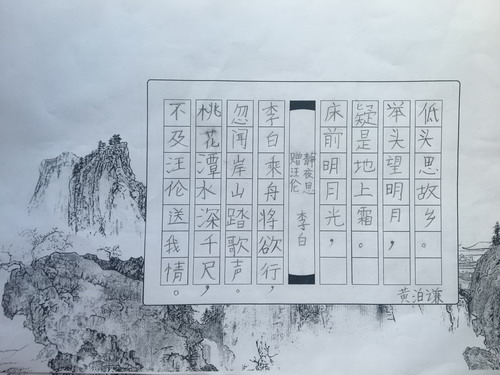 静夜思
赠汪伦
李白
床前明月光，
疑是地上霜。
举头望明月，
低头思故乡。
李白乘舟将欲行，
忽闻岸山踏歌声。
桃花潭水深千尺，
不及汪伦送我情。
黄泊谦